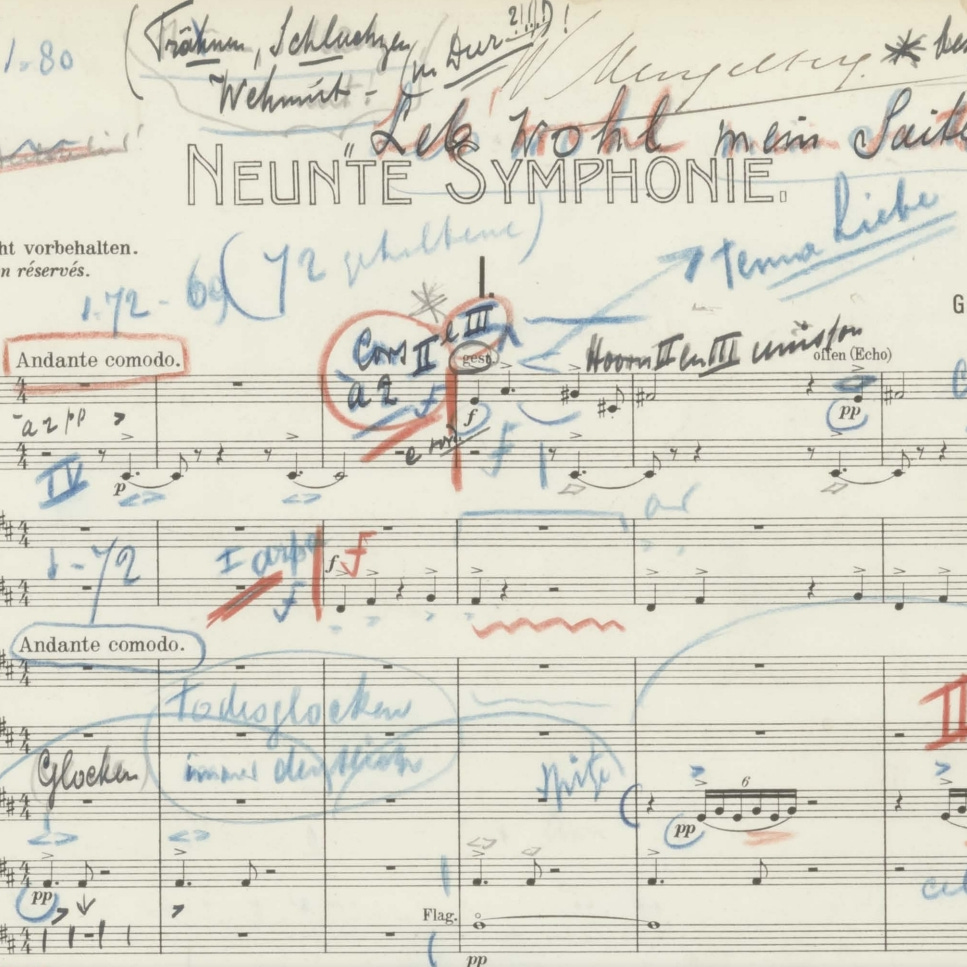 1. 80
(Trähnen, Schluchzen
Wehmut! - (in Dur!!!)!
W Mengelberg.
Leb wohl mein Saite
NEUNTE SYMPHONIE.
ht vorbehalten.
n réservés.
1. 72 - 69 (72 gehaltene)
Tema Liebe
I.
G
Andante comodo.
Cors II e III
à 2 f
gest.
Hoorn II en III unisson
offen (Echo)
a 2 pp
f
pp
IV
p
f
1 - 72
I arpa
f
f f
Andante comodo.
Todesglocken
immer deutlich
Glocken
Spitze
II
6
pp
pp
Flag.
pp